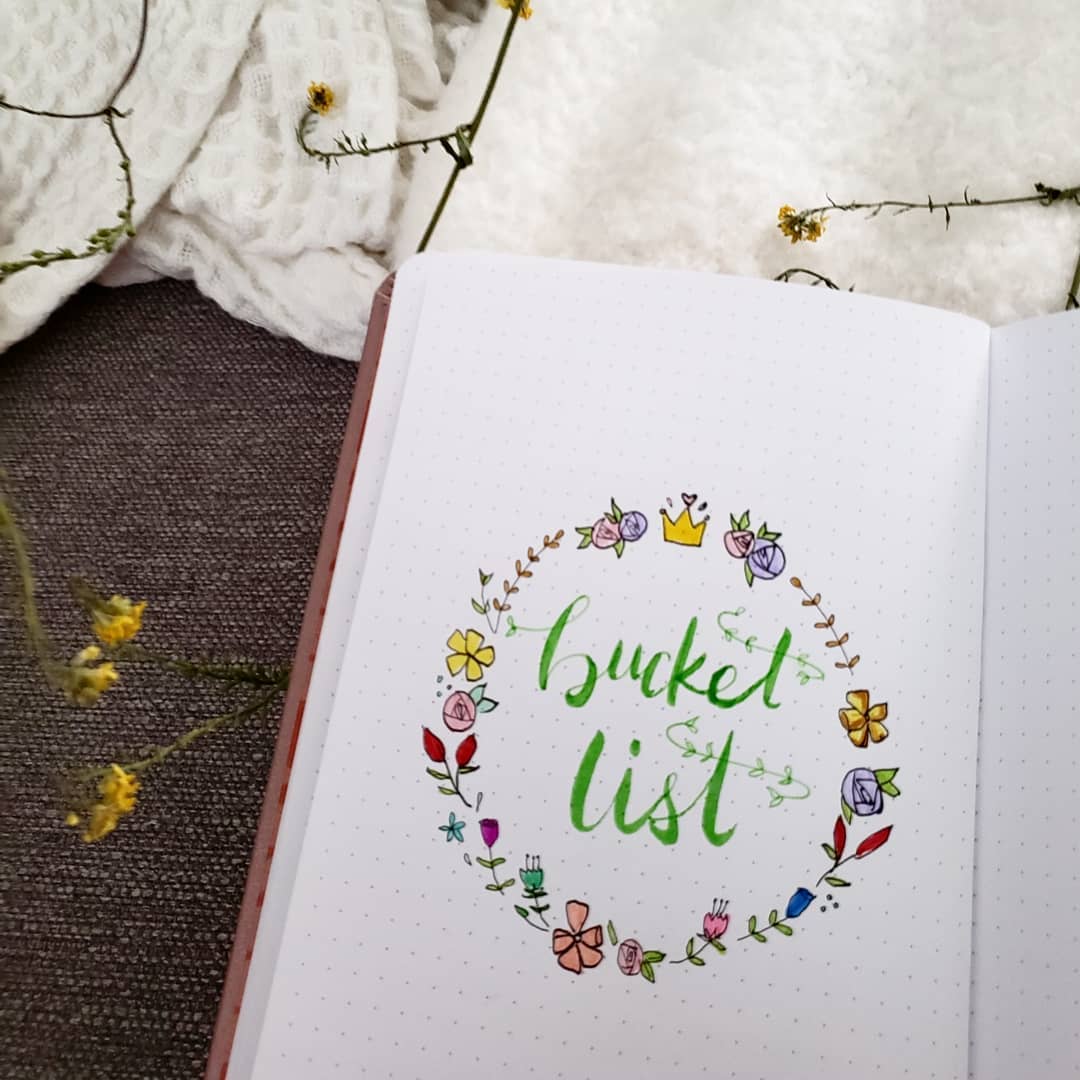 bucket
list